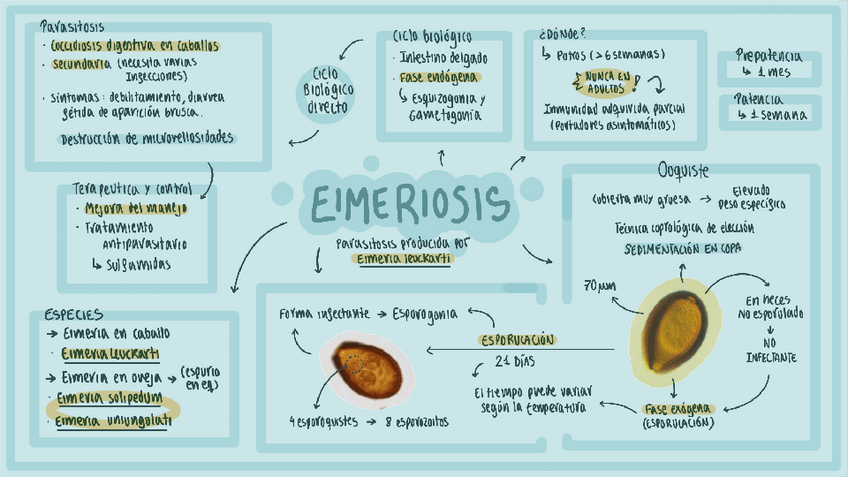 Parasitosis
· Coccidiosis digestiva en caballos
· secundaria (necesita varias
infecciones)
· Síntomas: debilitamiento, diarrea
fétida de aparición brusca.
Destrucción de microvellosidades
Ciclo
Biológico
directo
Ciclo biológico
· Intestino delgado
· Fase endógena
↳ Esquizogonia y
Gametogonia
¿Dónde?
↳ Potros (>6 semanas)
NUNCA EN
ADULTOS !
Inmunidad adquirida parcial
(Portadores asintomáticos)
Prepatencia
↳ 1 mes
Patencia
↳ 1 semana
Terapeutica y control
· Mejora del manejo
· Tratamiento
Antiparasitario
↳ Sulfamidas
EIMERIOSIS
Parasitosis producida por
Eimeria leuckarti
Ooquiste
Cubierta muy gruesa → Elevado
peso específico
Técnica coprológica de elección
SEDIMENTACIÓN EN COPA
70 µm
En heces
No esporulado
↓
NO
INFECTANTE
Fase exógena
(ESPORULACIÓN)
ESPECIES
→ Eimeria en caballo
· Eimeria leuckarti
→ Eimeria en oveja → (espurio
en eq)
· Eimeria solipedum
· Eimeria uniungulati
Forma infectante → Esporogonia
ESPORULACIÓN
21 DÍAS
El tiempo puede variar
según la temperatura
4 esporoquistes → 8 esporozoitos